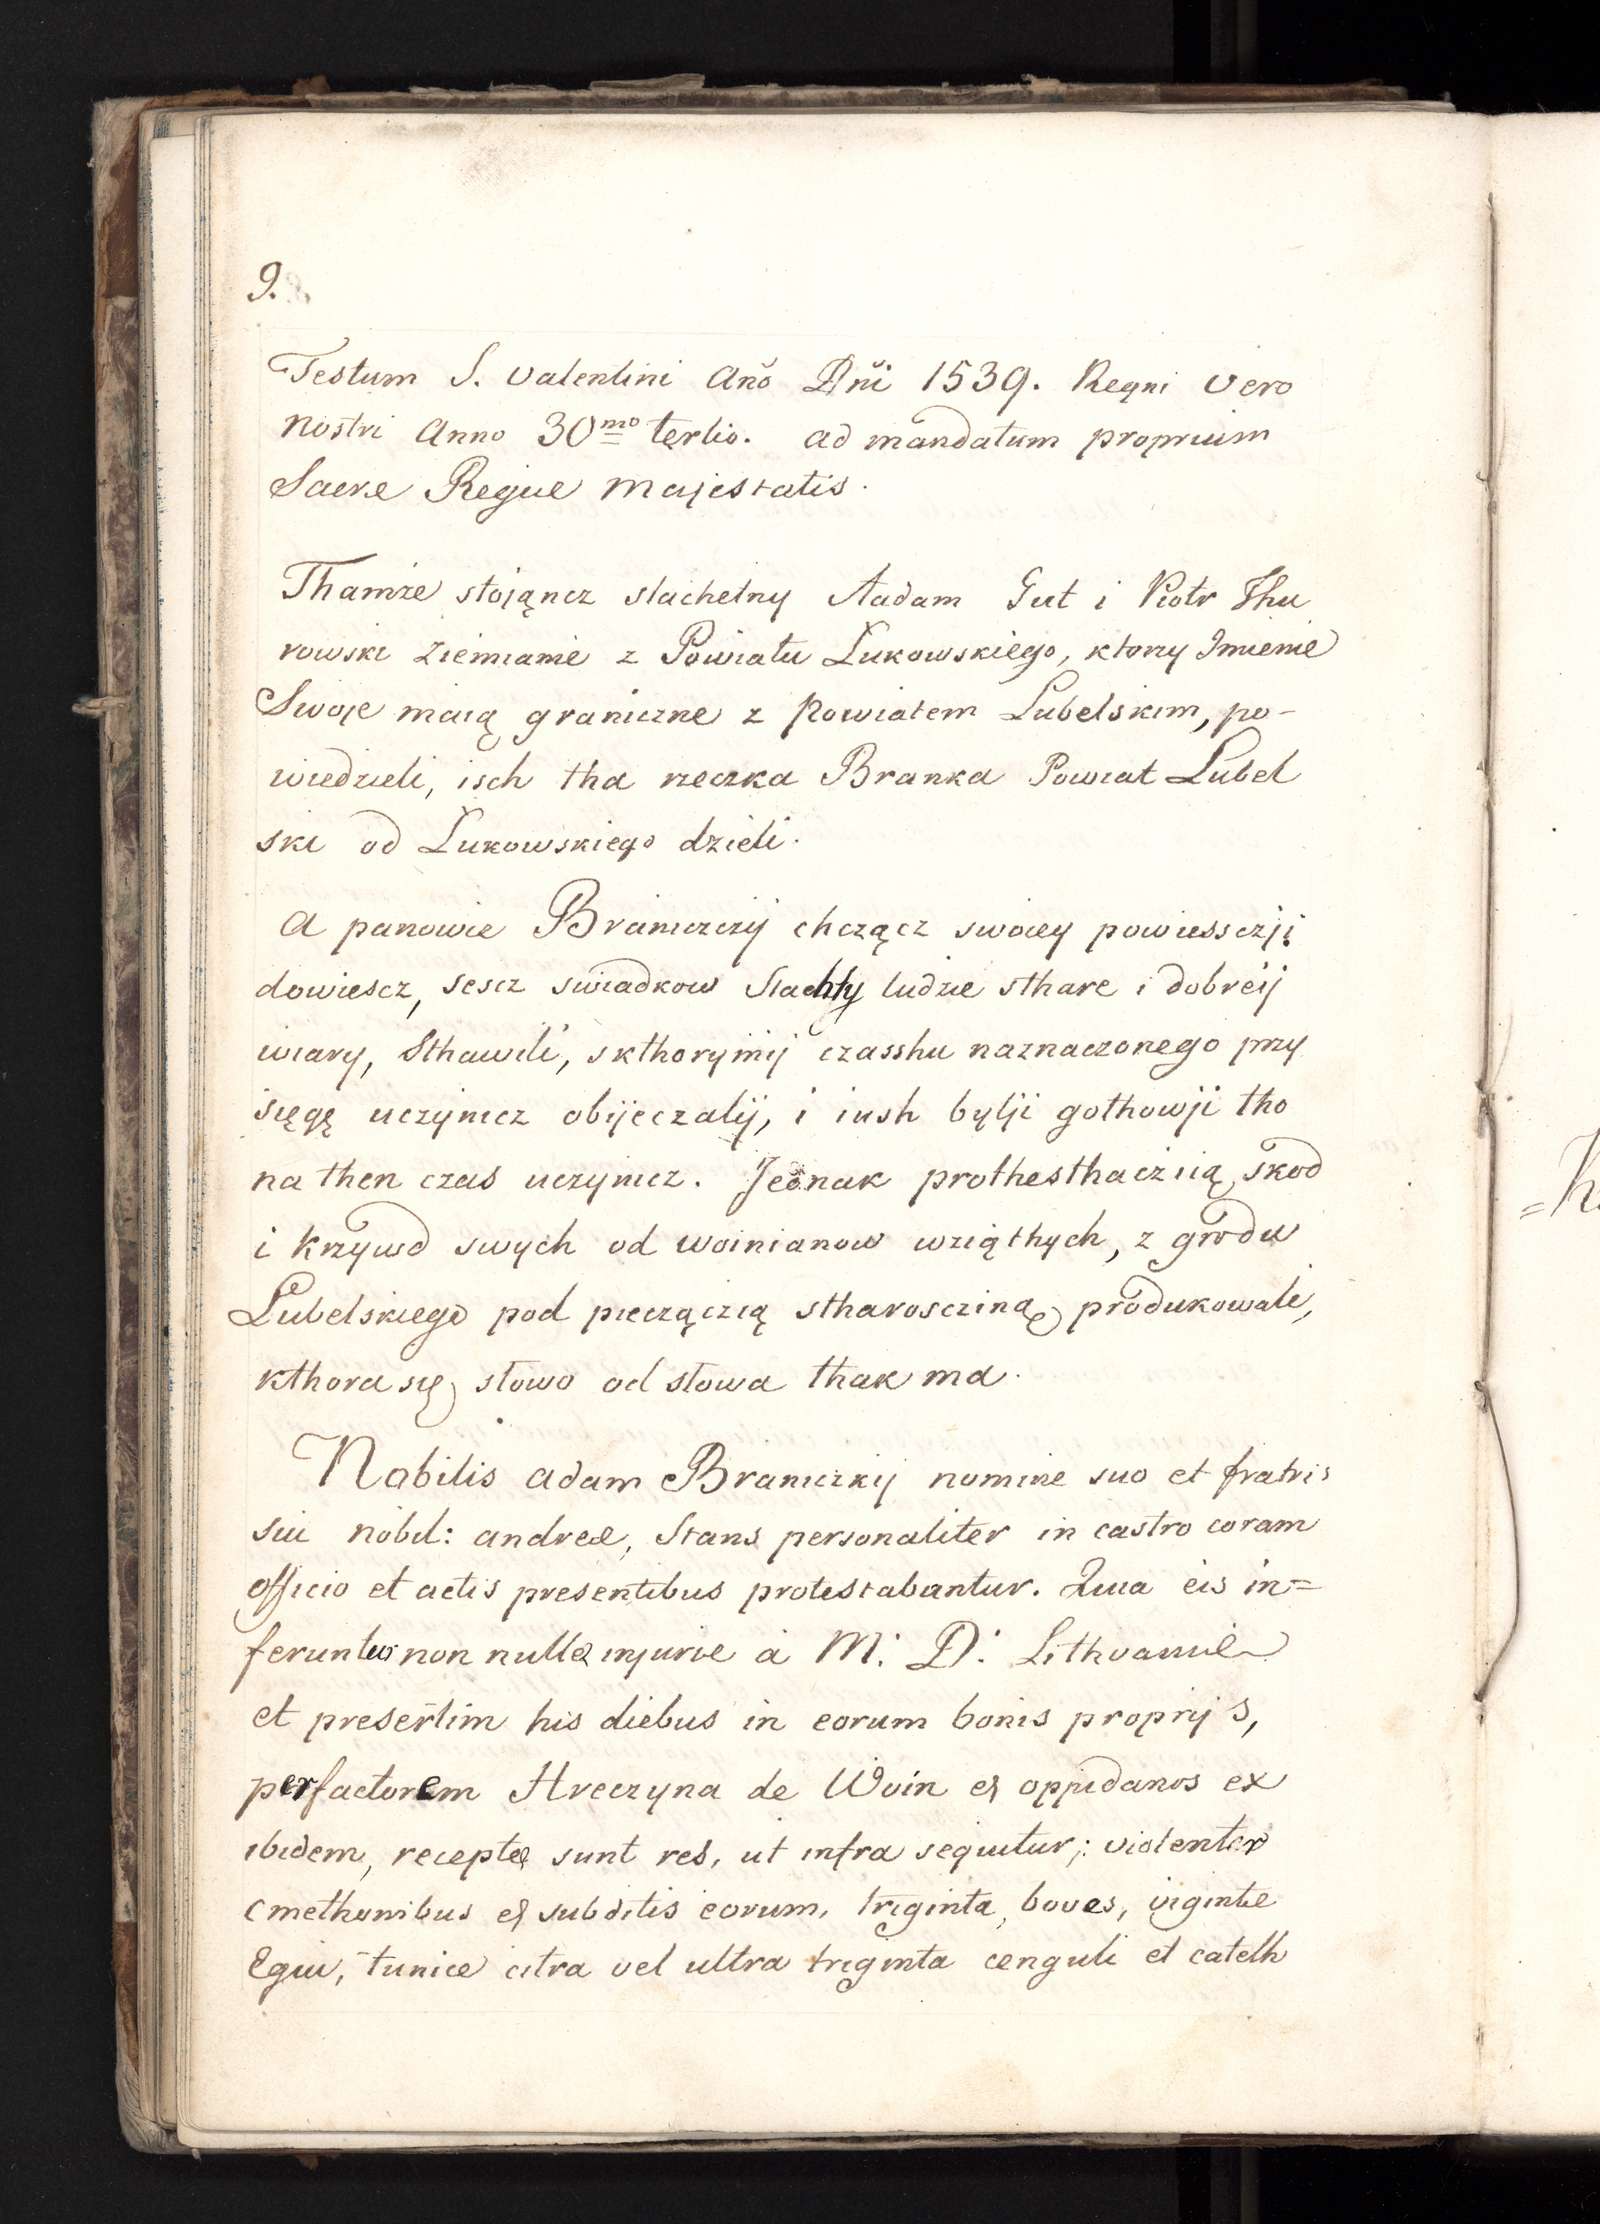 9.
Festum S. Valentini Ano Dni 1539. Regni Vero
Nostri Anno 30mo tertio. ad mandatum proprium
Sacre Regiæ Majestatis.
Thamże stojąncz slachetny Aadam Gut i Piotr Thu
rowski Ziemianie z Powiatu Łukowskiego, ktorzy Imienie
Swoje maią graniczne z Powiatem Lubelskim, po-
wiedzieli, isch tha rzeczka Branka Powiat Lubel
ski od Łukowskiego dzieli.
A panowie Braniczczij chczącz swoiey powiessczji
dowiescz, sescz swiadkow Slachty ludzie sthare i dobreij
wiary, Sthawili, skthorymij czasshu naznaczonego przy
sięgę uczynicz obijeczalij, i iush bylji gothowji tho
na then czas uczynicz. Jednak prothesthacżiią, skod
i krzywd swych od woinianow wziąthych, z grodu
Lubelskiego pod pieczączią stharoscziną produkowali,
kthora się słowo od słowa thak ma.
Nobilis Adam Braniczkij nomine suo et fratris
sui nobil: andreæ, Stans personaliter in castro coram
officio et actis presentibus protestabantur. Quia eis in=
feruntur non nullæ injuriæ a M: D: Lithvaniæ
et presertim his diebus in eorum bonis proprijs,
perfactorem Hreczyna de Woin et oppidanos ex
ibidem, receptæ sunt res, ut infra sequitur; violenter
cmethonibus et subditis eorum, triginta, boves, viginti
Equi, tunice citra vel ultra triginta cenguli et catelli
=K